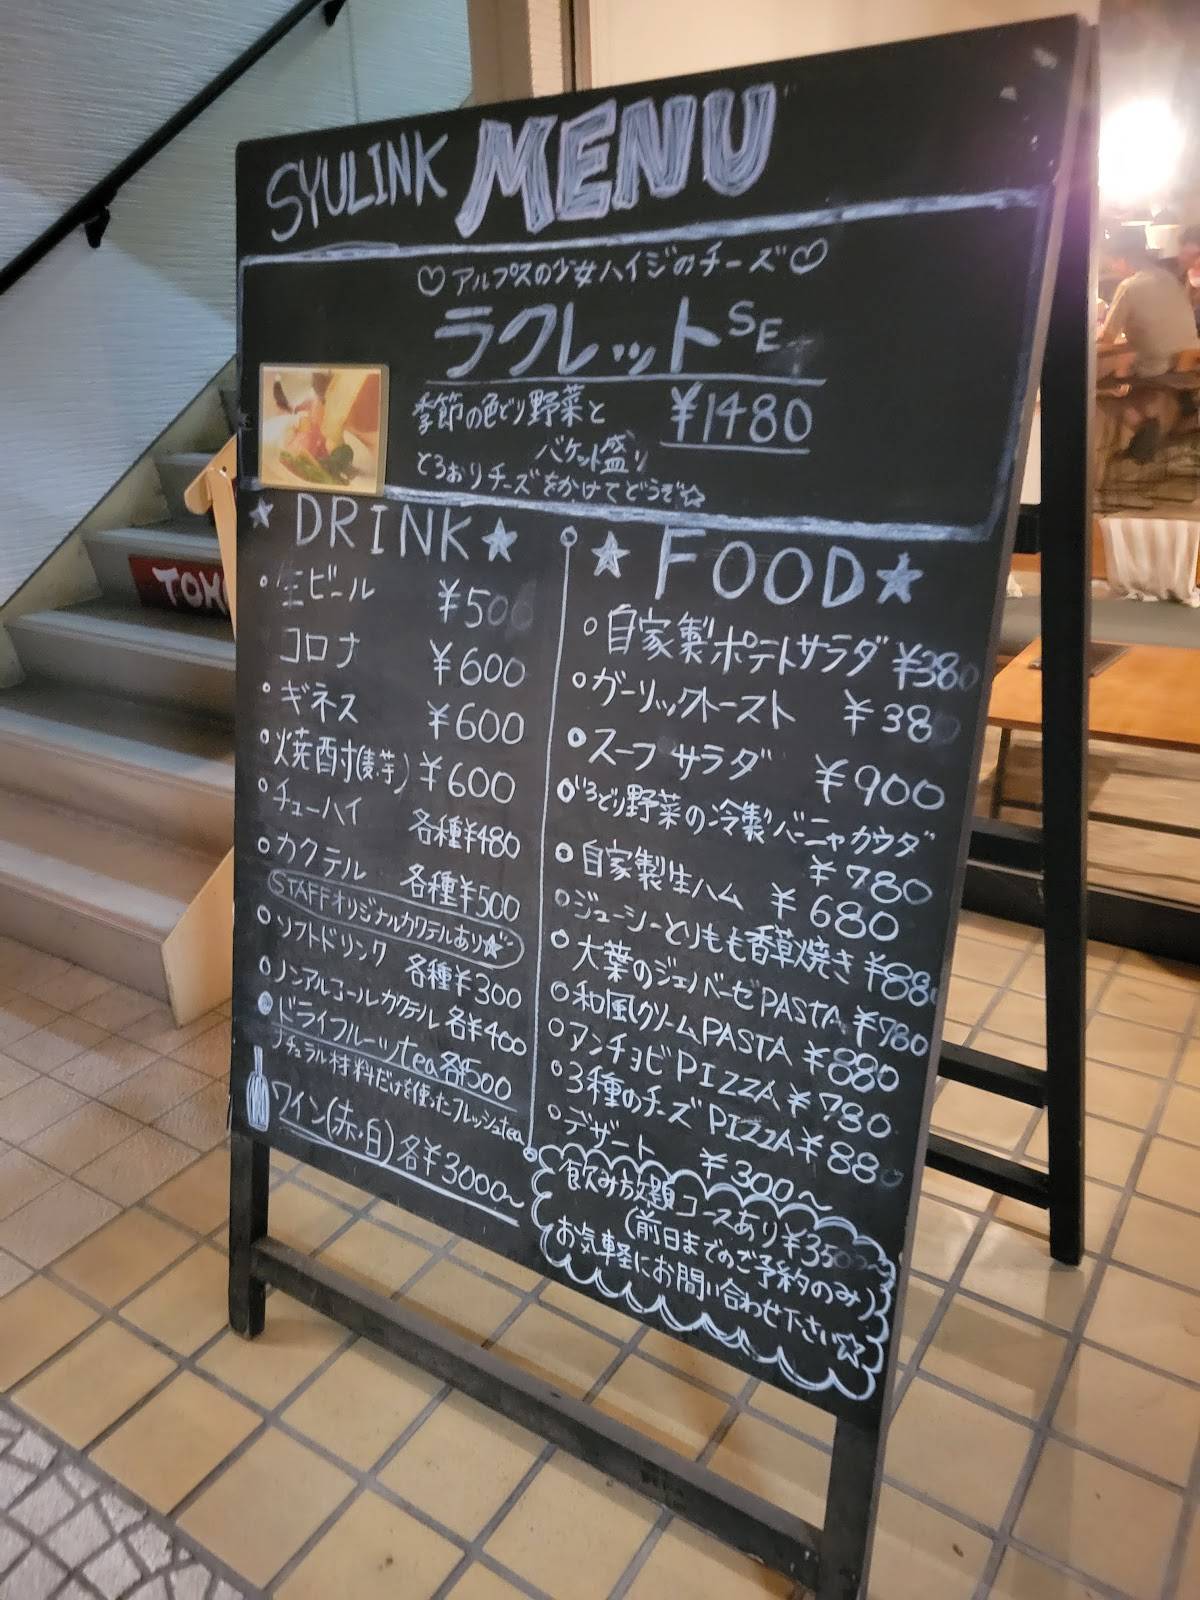 SYULINK MENU
♡アルプスの少女ハイジのチーズ♡
ラクレットSET
季節の色どり野菜と ¥1480
バケット盛り
とろぉりチーズをかけてどうぞ☆
★DRINK★
・生ビール ¥500
コロナ ¥600
・ギネス ¥600
・焼酎(麦・芋) ¥600
・チューハイ 各種¥480
・カクテル 各種¥500
STAFFオリジナルカクテルあり★
・ソフトドリンク 各種¥300
・ノンアルコールカクテル 各¥400
・ドライフルーツtea 各¥500
ナチュラル材料だけを使ったフレッシュtea
ワイン(赤・白)各¥3000~
★FOOD★
・自家製ポテトサラダ ¥380
・ガーリックトースト ¥380
・スープサラダ ¥900
・いろどり野菜の冷製バーニャカウダ
¥780
・自家製生ハム ¥680
・ジューシーとりもも香草焼き ¥880
・大葉のジェノバーゼPASTA ¥780
・和風クリームPASTA ¥880
・アンチョビPIZZA ¥780
・3種のチーズPIZZA ¥880
・デザート ¥300~
飲み放題コースあり¥3500~
(前日までのご予約のみ)
お気軽にお問い合わせ下さい☆